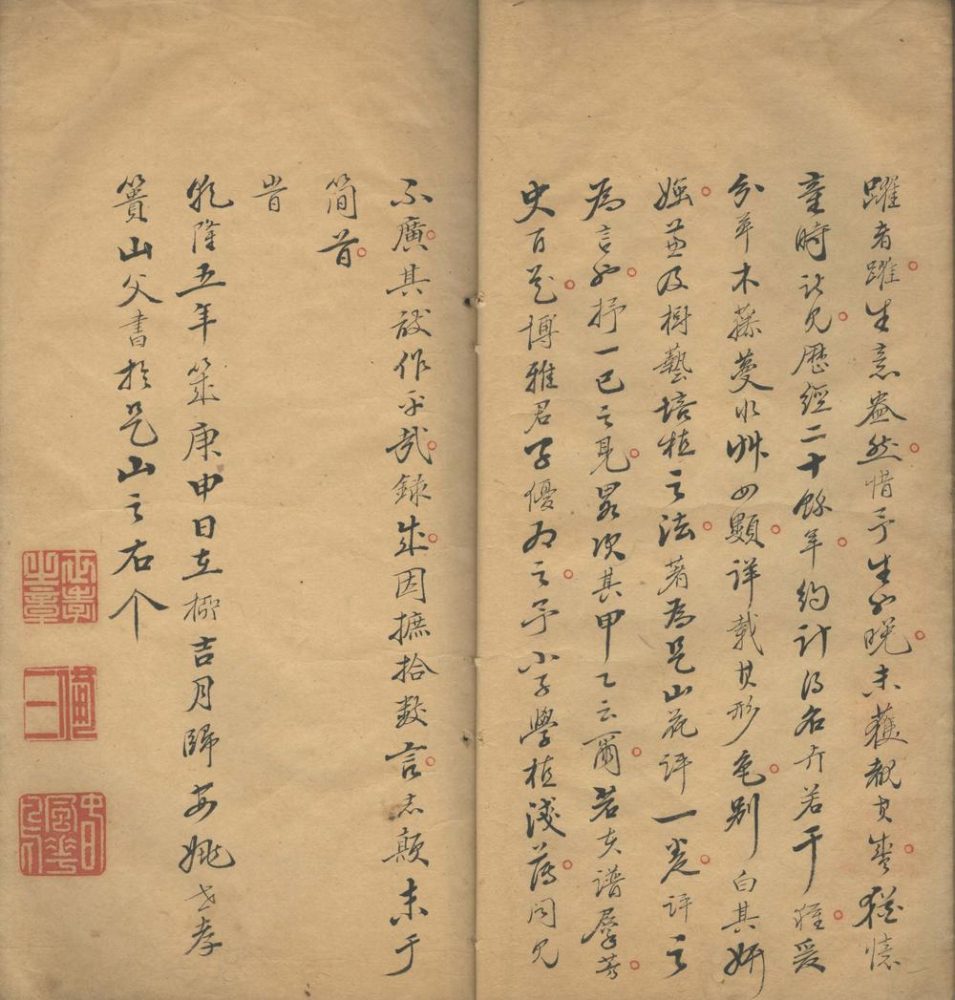 躍者躍生意盎然惜予生也晚未獲覩其盛猶憶
童時所見歷經二十餘年約計得名卉若干種爰
分草木藤蔓水艸四類詳載其形色別白其妍
媸並及樹藝培植之法著為是山花評一卷評之
為言也抒一己之見畧次其甲乙云爾若夫譜羣芳
史百花博雅君子優為之予小子學植淺薄聞見
不廣其敢作乎哉錄成因摭拾數言志顛末于
簡首
旹
乾隆五年歲庚申日在柳吉月歸安姚世孝
簣山父書於是山之右个